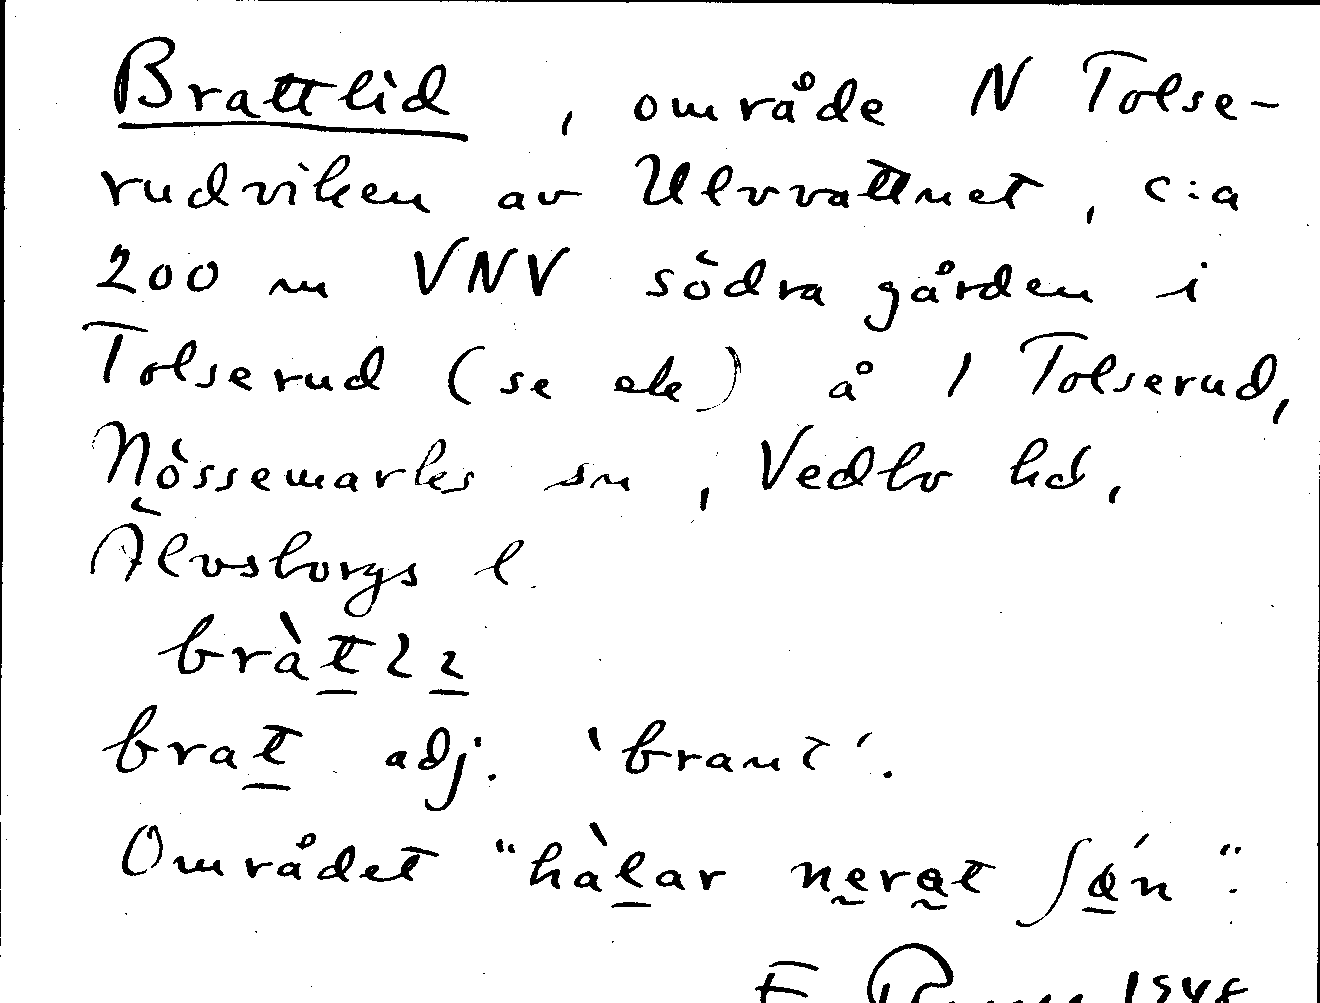 Brattlid, område N Tolse-
rudviken av Ulvvattnet, c:a
200 m VNV södra gården i
Tolserud (se ek) å 1 Tolserud,
Nössemarks sn, Vedbo hd,
Älvsborgs l.
brat adj. 'brant'.
Området "hàlar nerat